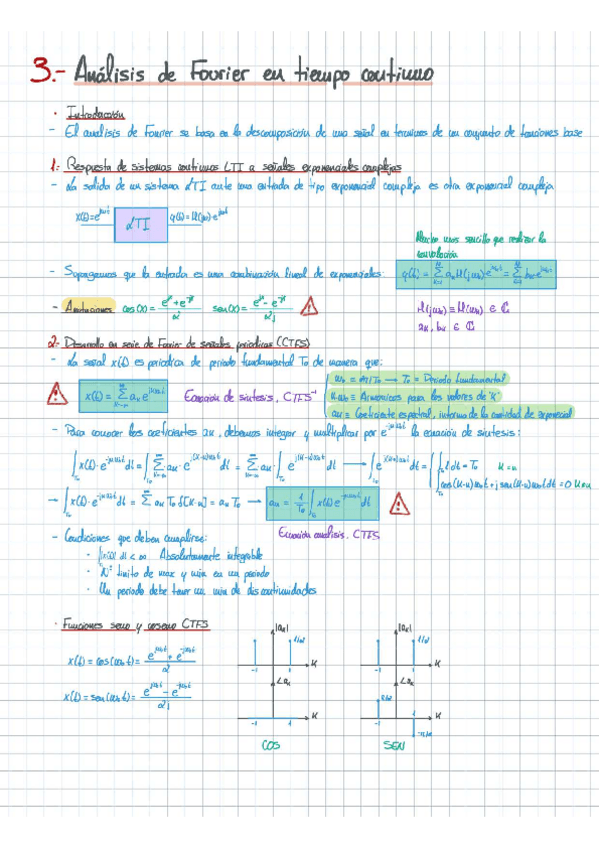 3.- Análisis de Fourier en tiempo continuo
· Introducción
- El análisis de Fourier se basa en la descomposición de una señal en términos de un conjunto de funciones base
1.- Respuesta de sistemas continuos LTI a señales exponenciales complejas
- La salida de un sistema LTI ante una entrada de tipo exponencial compleja es otra exponencial compleja
x(t)=e^{jωt} LTI y(t)=H(jω)·e^{jωt}
Mucho más sencillo que realizar la convolución
- Supongamos que la entrada es una combinación lineal de exponenciales:
- Anotaciones cos(x) = (e^{jx}+e^{-jx})/2 sen(x) = (e^{jx}-e^{-jx})/2j
H(jωk) ≡ H(ωk) ∈ ℂ
ak, bk ∈ ℂ
2.- Desarrollo en serie de Fourier de señales periódicas (CTFS)
- La señal x(t) es periódica de periodo fundamental To de manera que:
Ecuación de síntesis, CTFS⁻¹
ωo = 2π/To → To = Periodo fundamental
k·ωo = Armónicos para los valores de "k"
ak = Coeficiente espectral, informa de la cantidad de exponencial
- Para conocer los coeficientes ak, debemos integrar y multiplicar por e^{-jnωot} la ecuación de síntesis:
Ecuación análisis, CTFS
- Condiciones que deben cumplirse:
· ∫|x(t)| dt < ∞ Absolutamente integrable
· Nº finito de max y min en un periodo
· Un periodo debe tener un min de discontinuidades
· Funciones seno y coseno CTFS
|ak| |ak|
x(t) = cos(ωot) = (e^{jωot} + e^{-jωot})/2
-1 1 k -1 1 k
∠ak ∠ak
x(t) = sen(ωot) = (e^{jωot} - e^{-jωot})/2j
-1 1 k -1 1 k
COS SEN